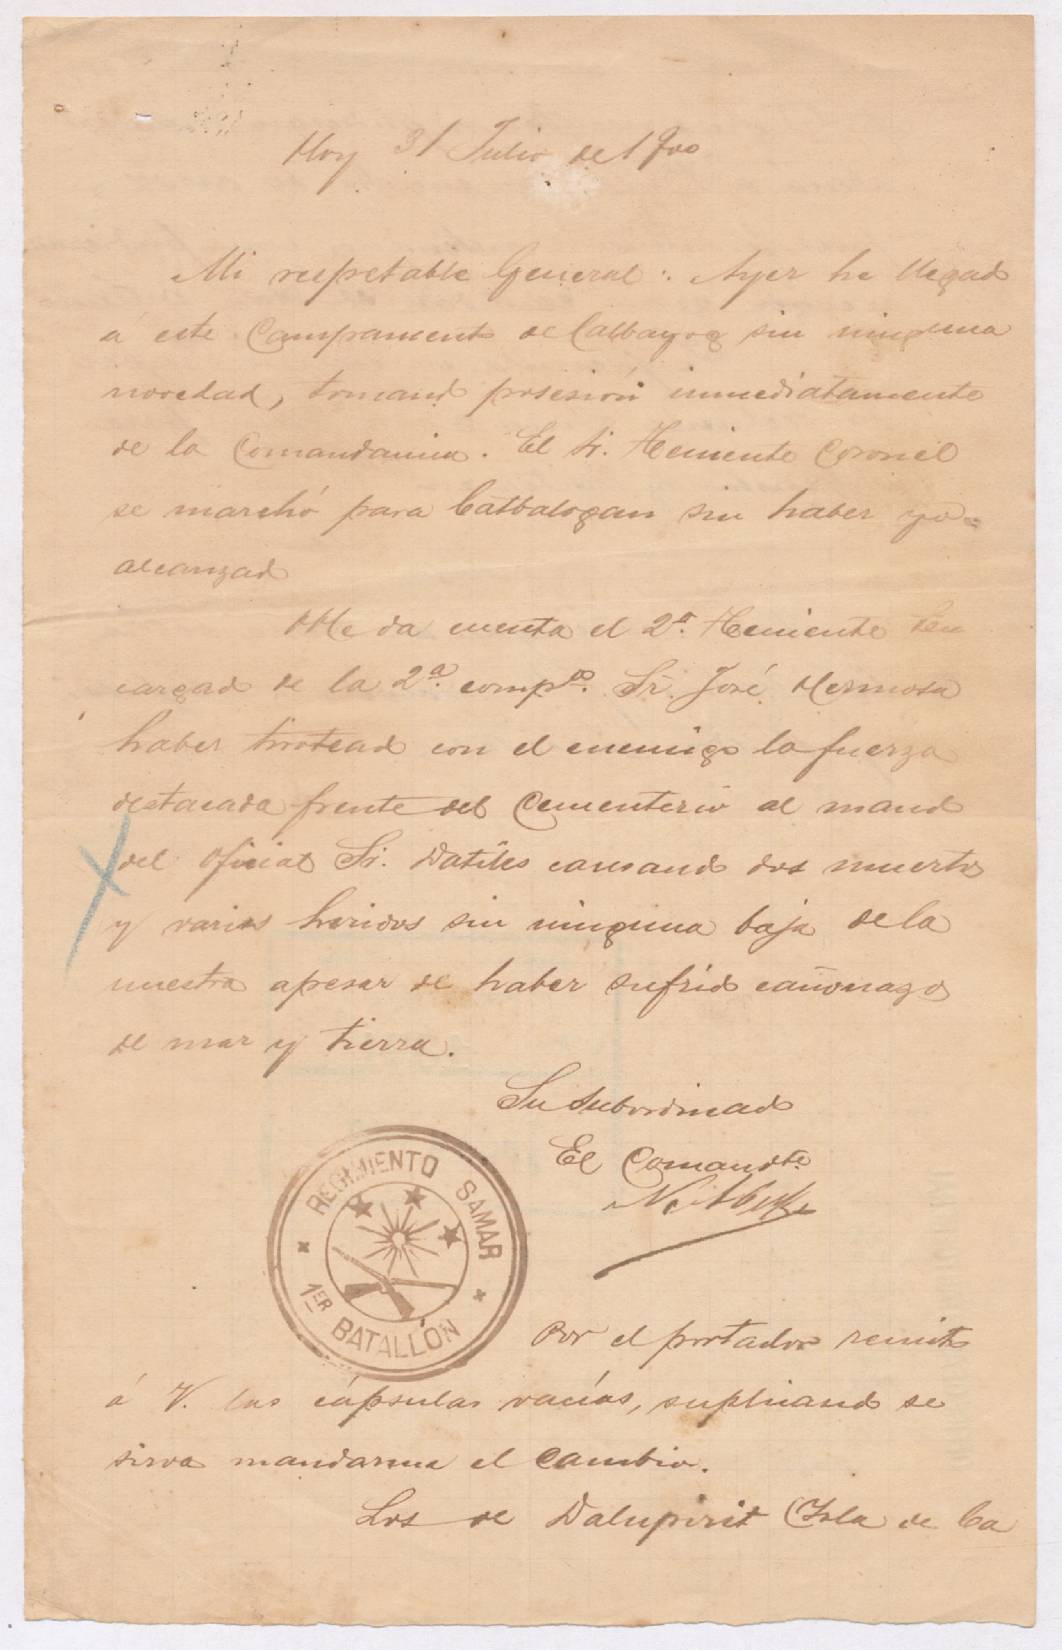 Hoy 31 Julio de 1900
Mi respetable General: Ayer he llegado
á este Campamento de Calbayog sin ninguna
novedad, tomando posesión inmediatamente
de la Comandancia. El Sr. Teniente Coronel
se marchó para Catbalogan sin haber yo
alcanzado
Me da cuenta el 2º. Teniente En
cargado de la 2ª. compª. Sr. José Hermosa
haber tiroteado con el enemigo la fuerza
destacada frente del Cementerio al mando
del Oficial Sr. Datiles causando dos muertos
y varios heridos sin ninguna baja de la
nuestra apesar de haber sufrido cañonazos
de mar y tierra.
Su subordinado
El Comandte.
REGIMIENTO SAMAR
1ER BATALLÓN
Por el portador remito
á V. las cápsulas vacías, suplicando se
sirva mandarme el cambio.
Los de Dalupirit (Isla de Ca